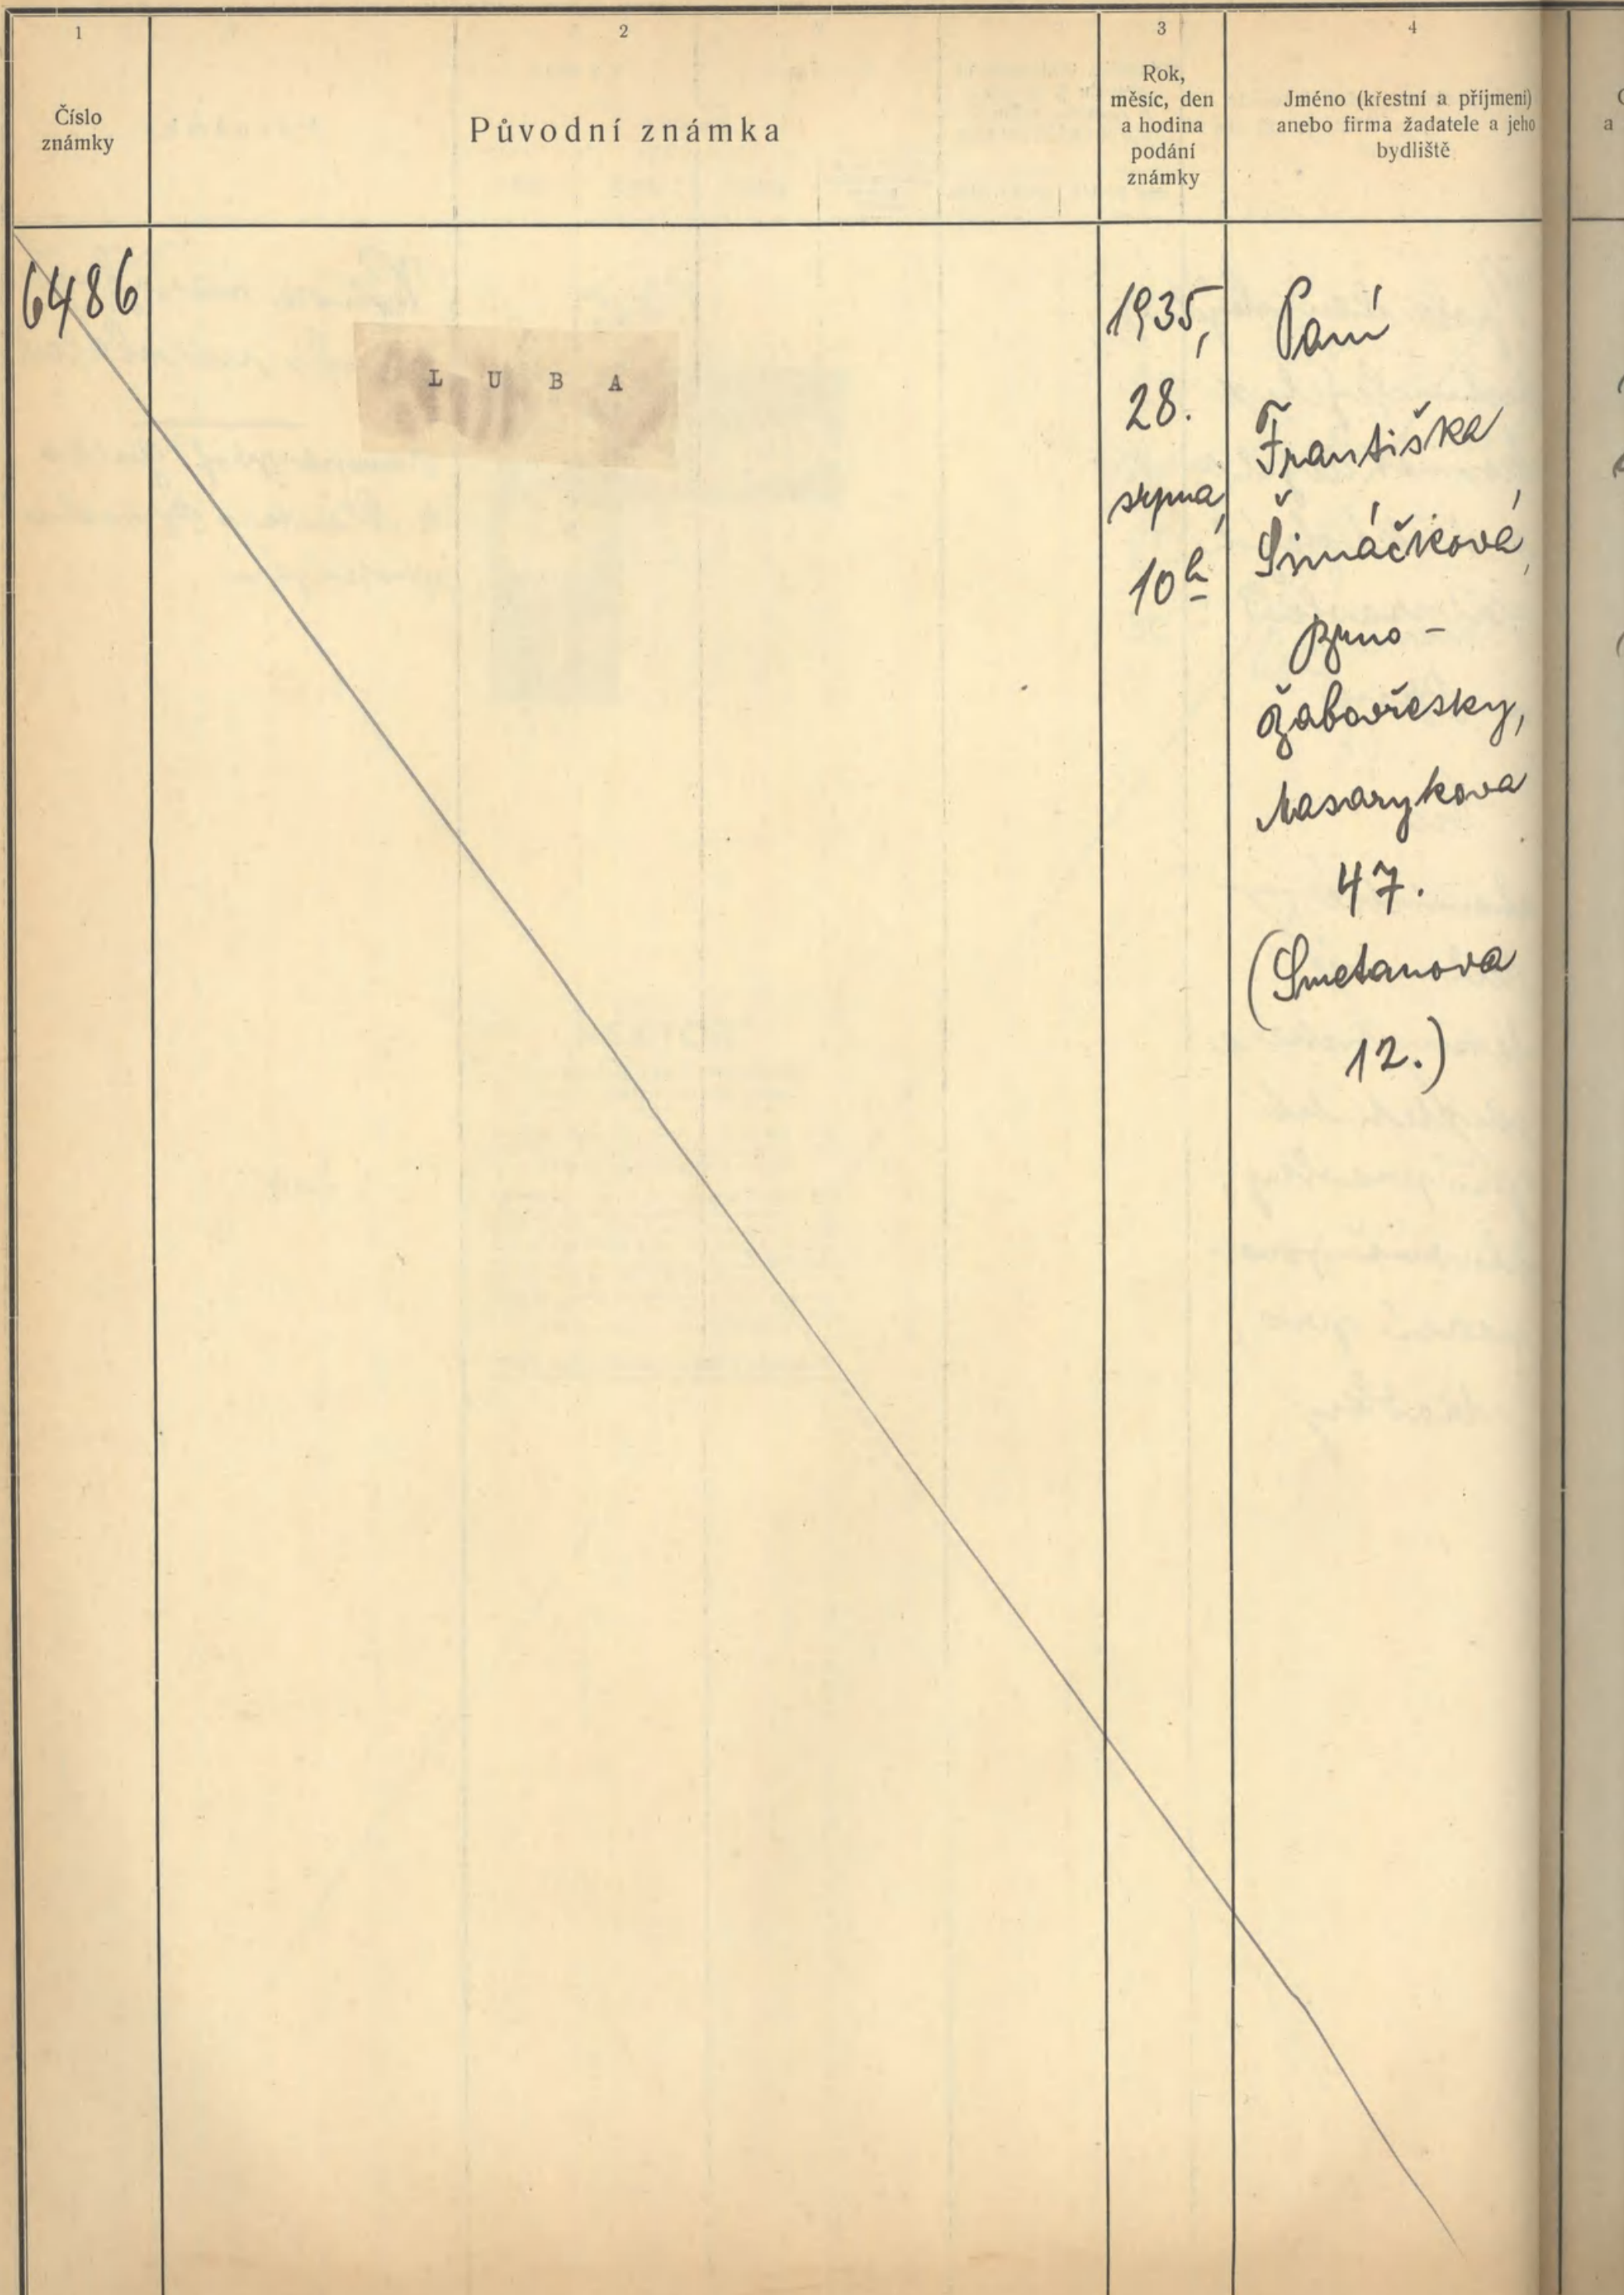 1
Číslo
známky
2
Původní známka
3
Rok,
měsíc, den
a hodina
podání
známky
4
Jméno (křestní a příjmení)
anebo firma žadatele a jeho
bydliště
6486
L U B A
1935,
28.
srpna,
10h
Paní
Františka
Šimáčková,
Brno -
Žabovřesky,
Masarykova
47.
(Smetanova
12.)